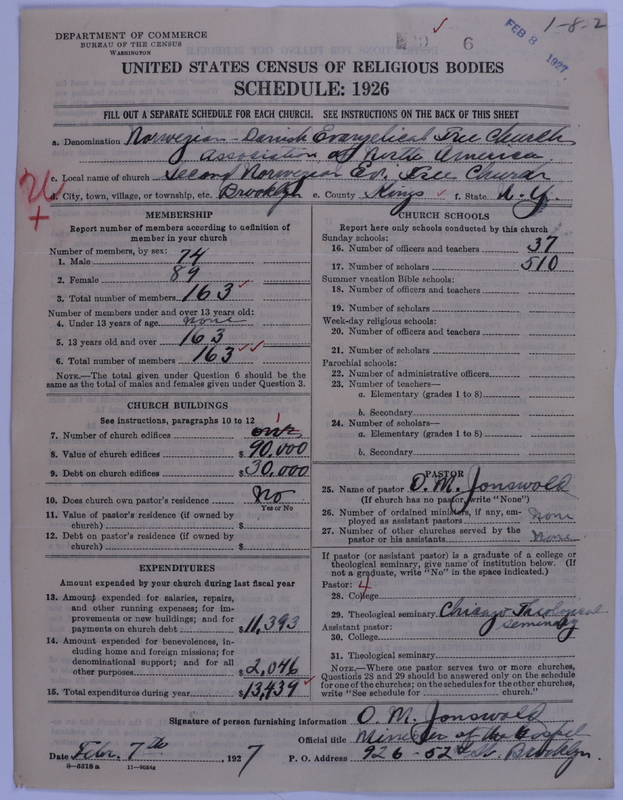 DEPARTMENT OF COMMERCE
BUREAU OF THE CENSUS
WASHINGTON
6
FEB 8 1927
1-8-2
UNITED STATES CENSUS OF RELIGIOUS BODIES
SCHEDULE: 1926
FILL OUT A SEPARATE SCHEDULE FOR EACH CHURCH. SEE INSTRUCTIONS ON THE BACK OF THIS SHEET
a. Denomination Norwegian-Danish Evangelical Free Church
Association of North America
c. Local name of church Second Norwegian Ev. Free Church
d. City, town, village, or township, etc. Brooklyn e. County Kings f. State N.Y.
MEMBERSHIP
Report number of members according to definition of
member in your church
Number of members, by sex:
1. Male 74
2. Female 89
3. Total number of members 163
Number of members under and over 13 years old:
4. Under 13 years of age none
5. 13 years old and over 163
6. Total number of members 163
NOTE.—The total given under Question 6 should be the
same as the total of males and females given under Question 3.
CHURCH BUILDINGS
See instructions, paragraphs 10 to 12
7. Number of church edifices one 1
8. Value of church edifices $ 90,000
9. Debt on church edifices $ 30,000
10. Does church own pastor's residence No
Yes or No
11. Value of pastor's residence (if owned by
church) $
12. Debt on pastor's residence (if owned by
church) $
EXPENDITURES
Amount expended by your church during last fiscal year
13. Amount expended for salaries, repairs,
and other running expenses; for im-
provements or new buildings; and for
payments on church debt $ 11,393
14. Amount expended for benevolences, in-
cluding home and foreign missions; for
denominational support; and for all
other purposes $ 2,046
15. Total expenditures during year $ 13,439
CHURCH SCHOOLS
Report here only schools conducted by this church
Sunday schools:
16. Number of officers and teachers 37
17. Number of scholars 510
Summer vacation Bible schools:
18. Number of officers and teachers
19. Number of scholars
Week-day religious schools:
20. Number of officers and teachers
21. Number of scholars
Parochial schools:
22. Number of administrative officers
23. Number of teachers—
a. Elementary (grades 1 to 8)
b. Secondary
24. Number of scholars—
a. Elementary (grades 1 to 8)
b. Secondary
PASTOR
25. Name of pastor O. M. Jonswold
(If church has no pastor, write "None")
26. Number of ordained ministers, if any, em-
ployed as assistant pastors None
27. Number of other churches served by the
pastor or his assistants None
If pastor (or assistant pastor) is a graduate of a college or
theological seminary, give name of institution below. (If
not a graduate, write "No" in the space indicated.)
Pastor: 4
28. College
29. Theological seminary Chicago Theological
Seminary
Assistant pastor:
30. College
31. Theological seminary
NOTE.—Where one pastor serves two or more churches,
Questions 28 and 29 should be answered only on the schedule
for one of the churches; on the schedules for the other churches,
write "See schedule for church."
Signature of person furnishing information O. M. Jonswold
Official title Minister of the Gospel
Date Febr. 7th, 1927 P. O. Address 926-52d St. Brooklyn.
8-5318 a